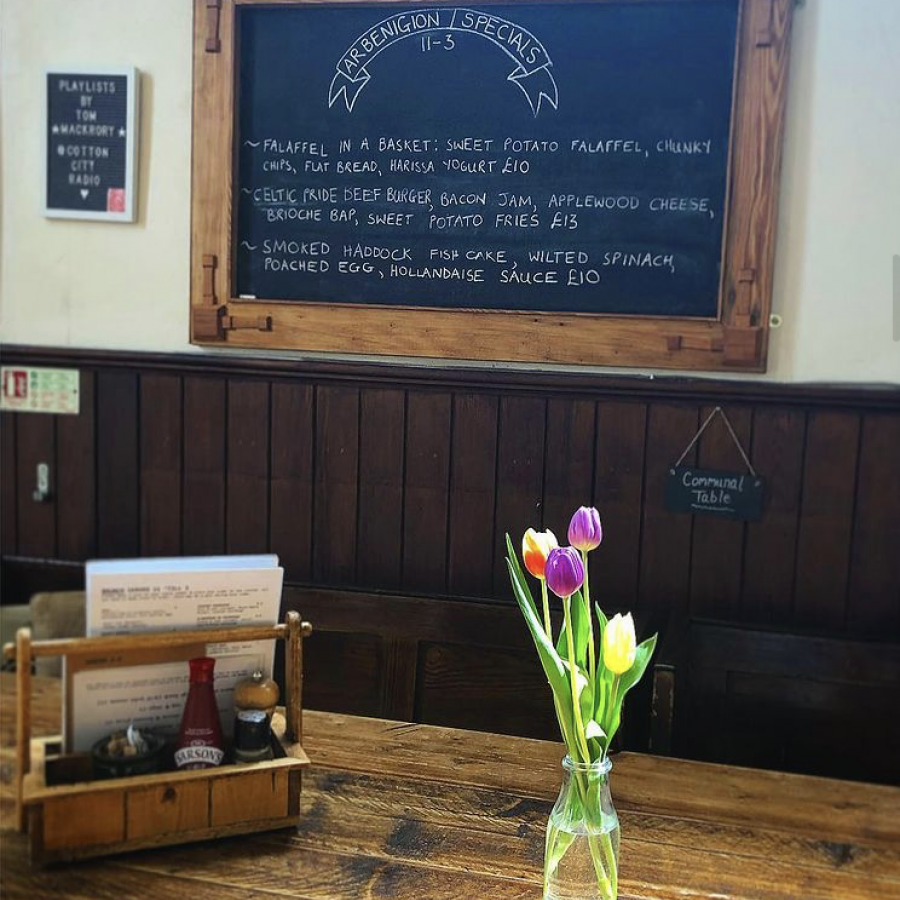 ARBENIGION / SPECIALS
11-3
~ FALAFFEL IN A BASKET: SWEET POTATO FALAFFEL, CHUNKY
CHIPS, FLAT BREAD, HARISSA YOGURT £10
~ CELTIC PRIDE BEEF BURGER, BACON JAM, APPLEWOOD CHEESE,
BRIOCHE BAP, SWEET POTATO FRIES £13
~ SMOKED HADDOCK FISH CAKE, WILTED SPINACH,
POACHED EGG, HOLLANDAISE SAUCE £10
PLAYLISTS
BY
TOM
★MACKRORY★
@COTTON
CITY
RADIO
♥
Communal
Table
SARSON'S